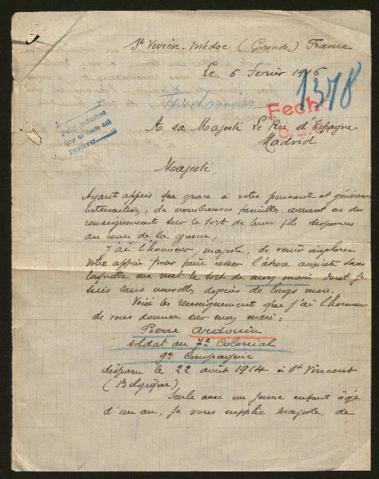 St Vivien, Médoc (Gironde) France
Le 6 Fevrier 1916
1378
Ardouin
Fech
A sa Majesté Le Roi d'Espagne
Madrid
Majesté,
Ayant appris que grace à votre puissante et généreuse
intervention, de nombreuses familles avaient eu des
renseignements sur le sort de leur fils disparus
au cours de la guerre,
j'ai l'honneur, majesté, de venir implorer
votre appui pour faire cesser l'atroce anxiété dans
laquelle me met le sort de mon mari dont je
suis sans nouvelles depuis de longs mois.
Voici les renseignements que j'ai l'honneur
de vous donner sur mon mari:
Pierre Ardouin
soldat au 7e Colonial
9e Compagnie
disparu le 22 août 1914 à St Vincent
(Belgique)
Seule avec un jeune enfant âgé
d'un an, je vous supplie majesté, de